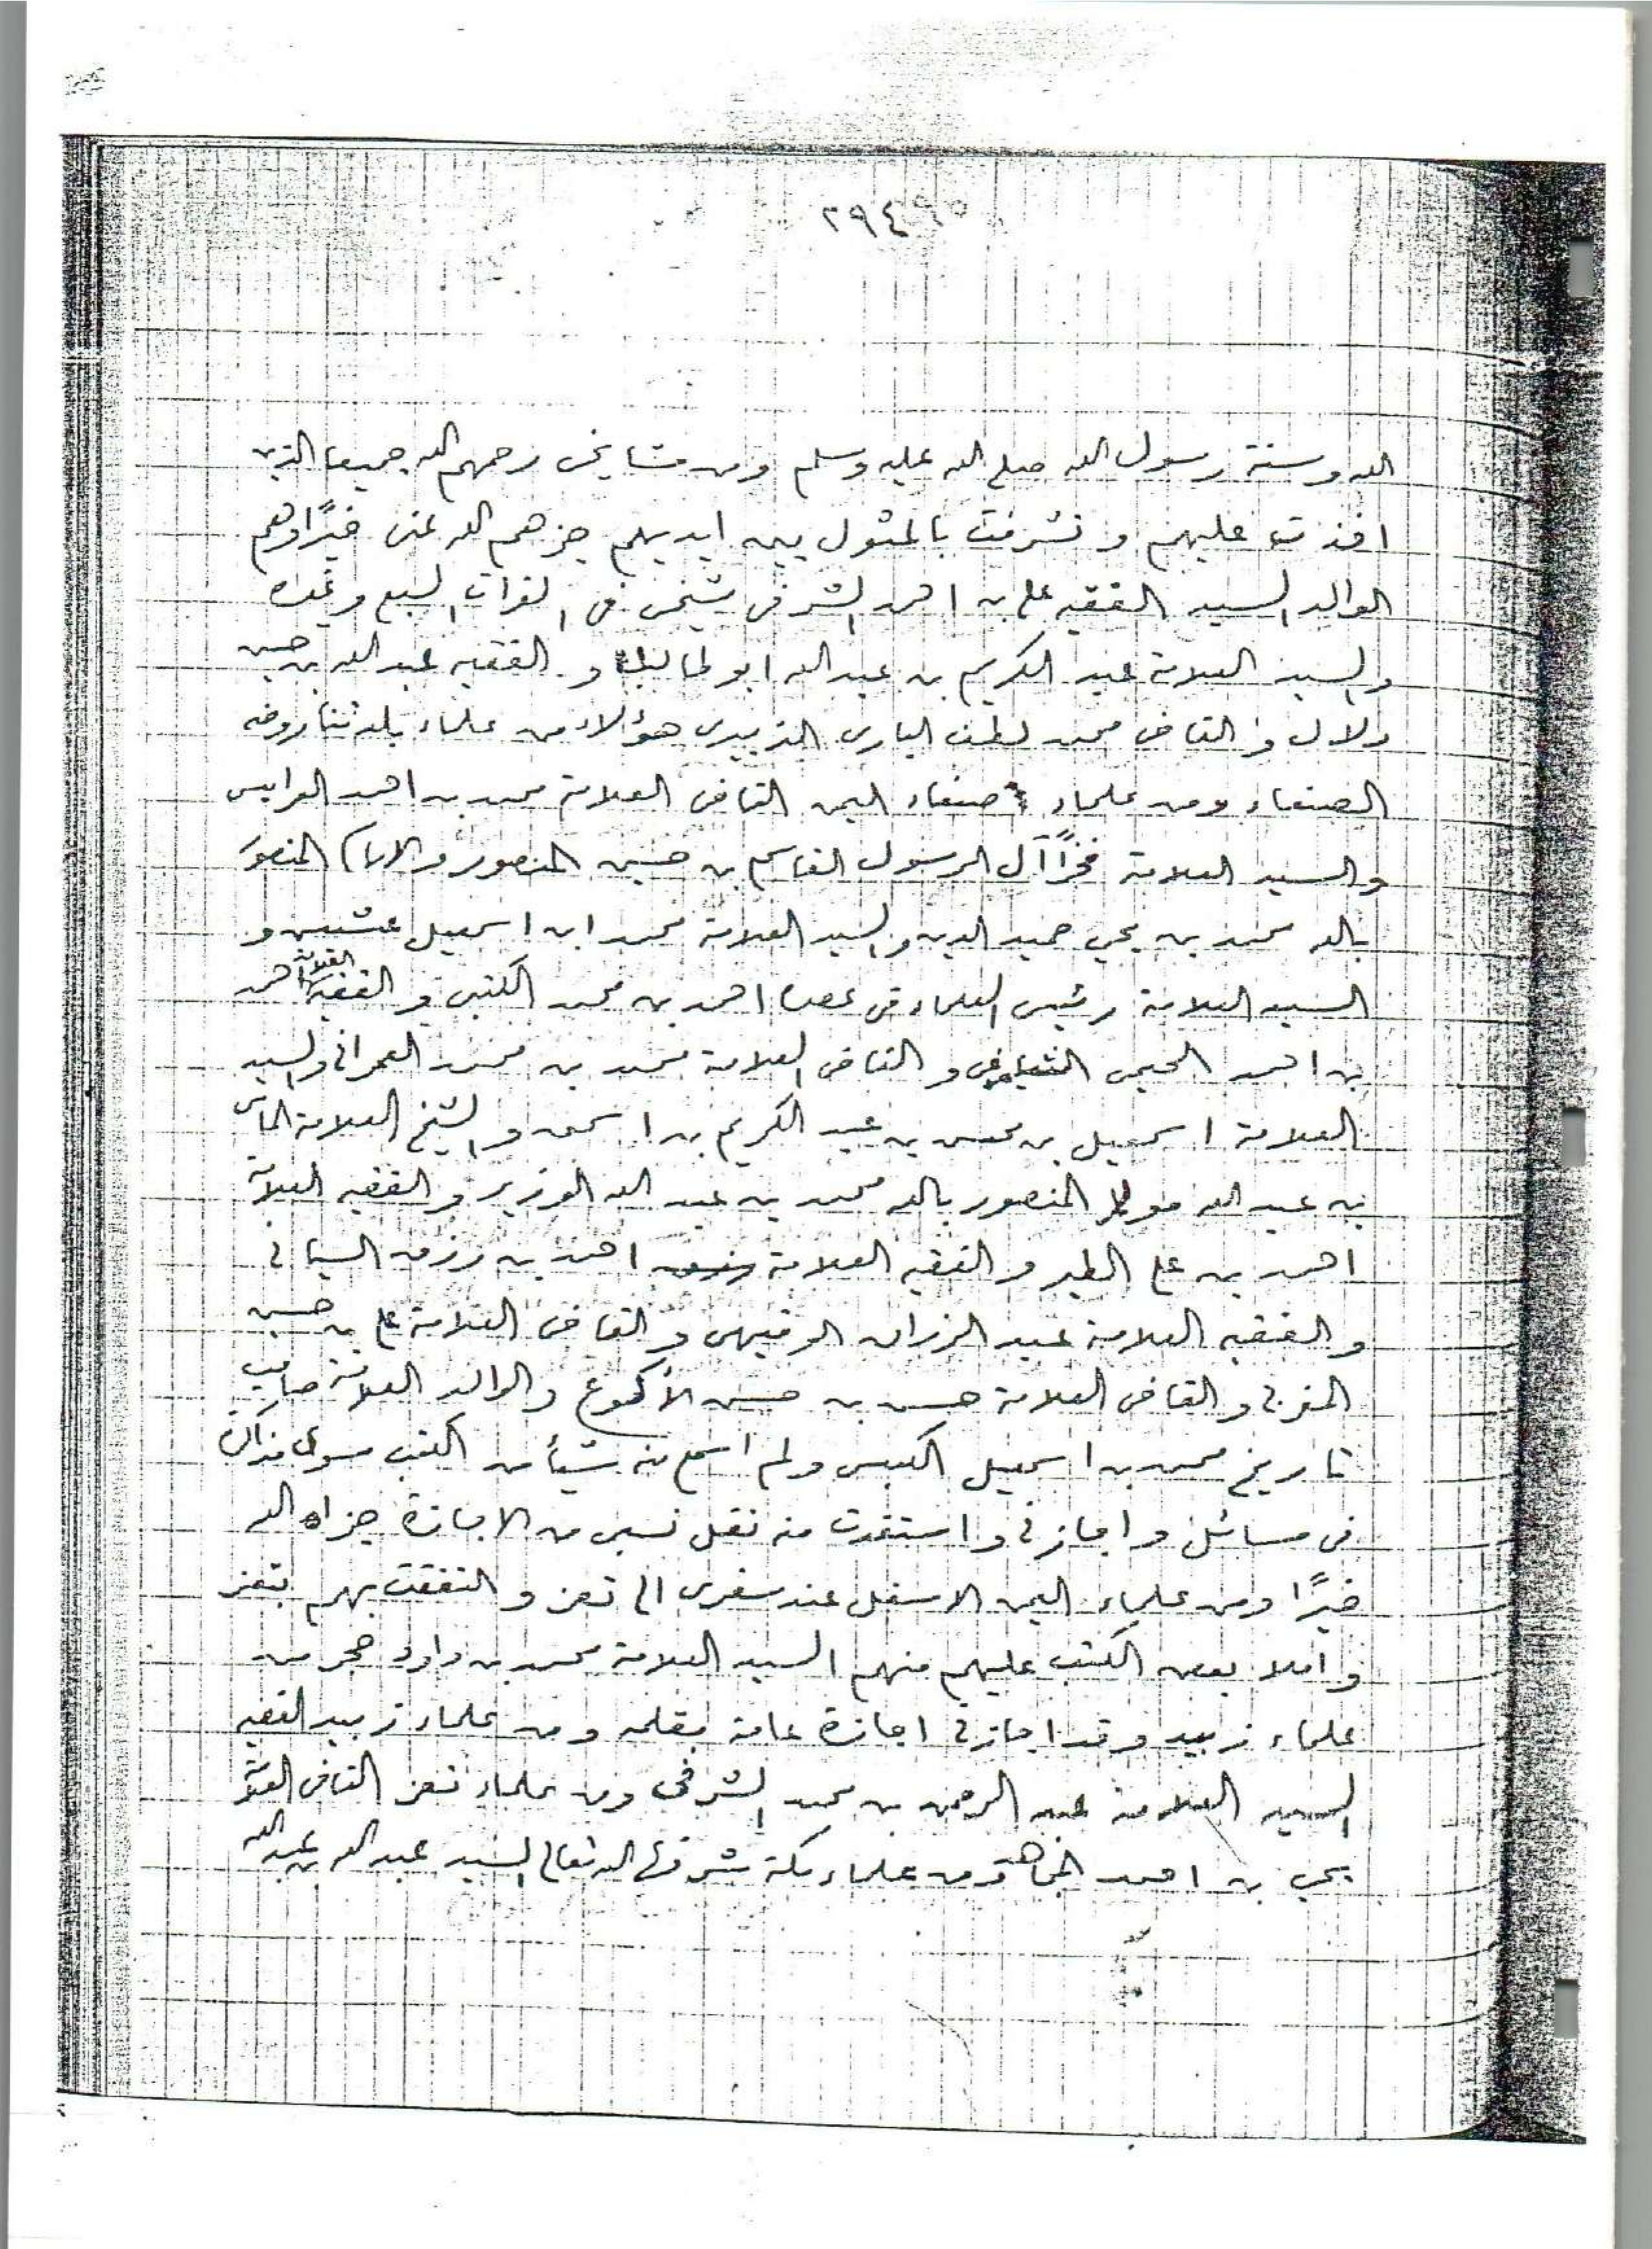 ٢٩٤
الله وسنة رسول الله صلى الله عليه وسلم ومن مشايخى رحمهم الله جميعا الذين
اخذت عليهم وتشرفت بالمثول بين ايديهم جزاهم الله عنى خيرًا وهم
الوالد السيد الفقيه على بن احمد الشرفى شيخى فى القرات السبع وغيره
والسيد العلامة عبد الكريم بن عبد الله ابو طالب و الفقيه عبد الله بن حسين
دلال و القاضى محمد لطف البارى الزبيرى هؤلاء من علماء بلدتنا روضه
الصنعاء ومن علماء صنعاء اليمن القاضى العلامة محمد بن احمد العراسى
والسيد العلامة فخرًا آل الرسول القاسم بن حسين المنصور والامام المنصور
بالله محمد بن يحي حميد الدين والسيد العلامة محمد ابن اسمعيل عشيش و
السيد العلامة رئيس العلماء فى عصره احمد بن محمد الكبسى و الفقيه العلامة احمد
بن احمد و القاضى العلامة محمد بن محمد العمرانى والسيد
العلامة اسمعيل بن محسن بن عبد الكريم بن اسحق و الشيخ العلامة الماس
بن عبد الله مولى المنصور بالله محمد بن عبد الله الوزير و الفقيه العلامة
احمد بن على الطير و الفقيه العلامة احمد بن رزق السيانى
و الفقيه العلامة عبد الرزاق الرقيحى و القاضى العلامة على بن حسين
المغربى و القاضى العلامة حسن بن حسن الأكوع و الوالد العلامة صاحب
تاريخ محمد بن اسمعيل الكبسى ولم اسمع منه شيئاً من الكتب سوى مذاكرة
فى مسائل و اجازنى و استفدت منه نقل نسبى من الاجازة جزاه الله
خيرًا ومن علماء اليمن الاسفل عند سفرى الى تعز و التفقت بهم بتعز
و املا بعض الكتب عليهم منهم السيد العلامة محمد بن داود حجر من
علماء زبيد و قد اجازنى اجازة عامة بقلمه و من علماء زبيد الفقيه
السيد العلامة عبد الرحمن بن محمد الشرفى ومن علماء تعز القاضى العلامة
يحي بن احمد المجاهد ومن علماء مكة شرفها الله تعالى السيد عبد الله بن عبد الله